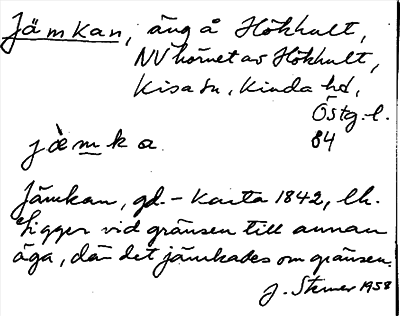 Jämkan, äng å Hökhult,
NV hörnet av Hökhult,
Kisa sn, Kinda hd,
Östg. l.
84
jämka
Jämkan, gd. – Karta 1842, lk.
Ligger vid gränsen till annan
äga, där det jämkades om gränsen.
J. Sterner 1958